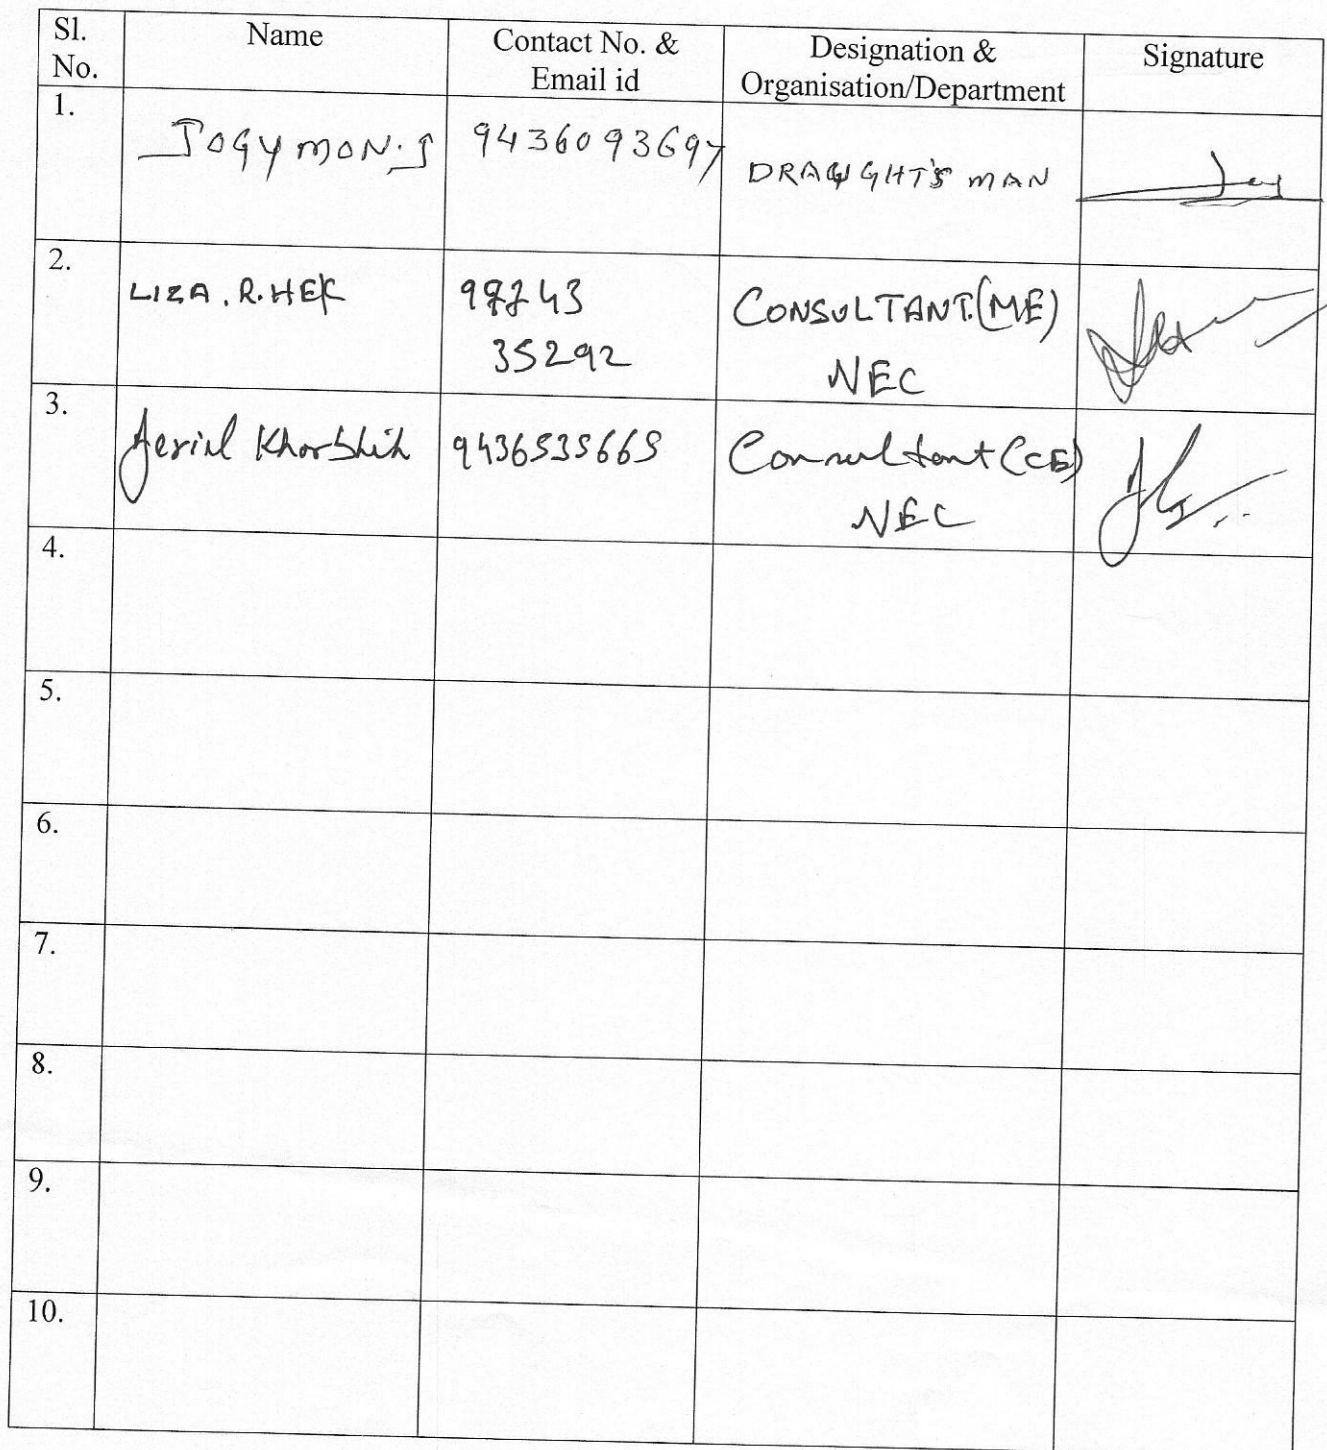 Sl. No.
Name
Contact No. &
Email id
Designation &
Organisation/Department
Signature
1.
JOGYMON.J
9436093697
DRAUGHT'S MAN
2.
LIZA.R.HEK
35292
CONSULTANT.(ME)
NEC
3.
9436535665
Consultant (CE)
NEC
4.
5.
6.
7.
8.
9.
10.